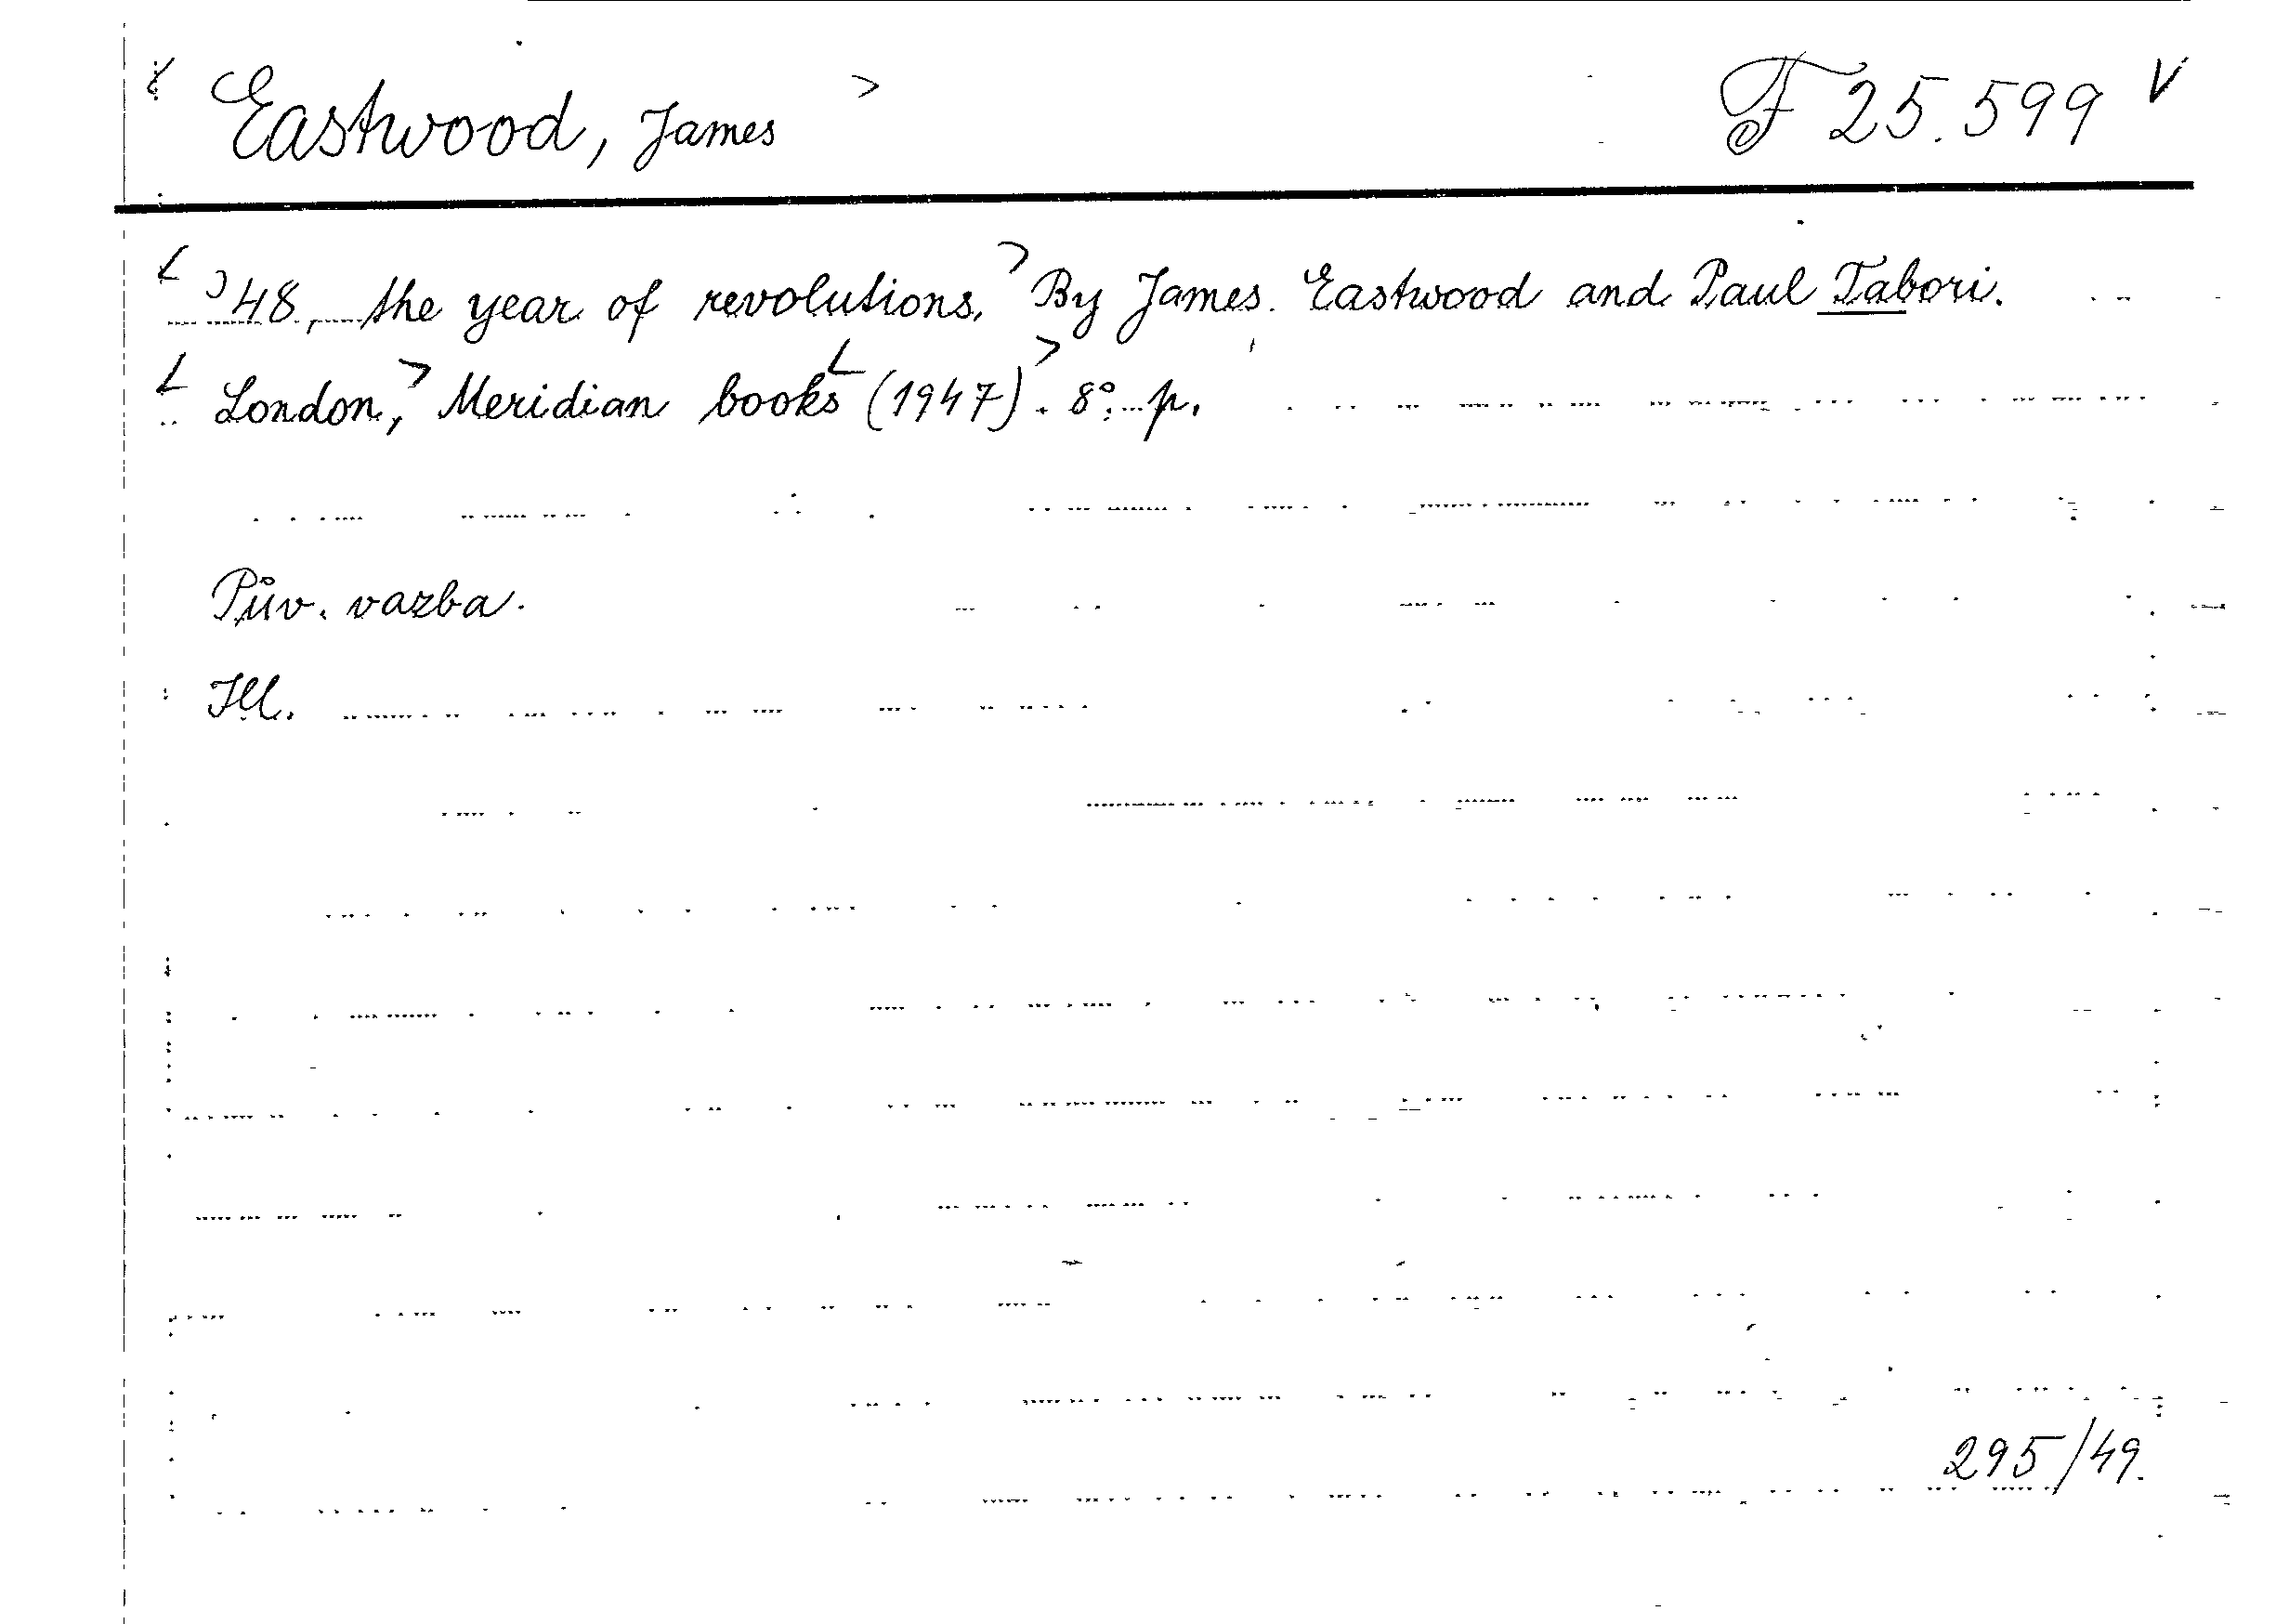 Eastwood, James F 25.599
'48, the year of revolutions. By James Eastwood and Paul Tabori.
London, Meridian books (1947). 8°. p.
Pův. vazba.
Ill.
295/49.